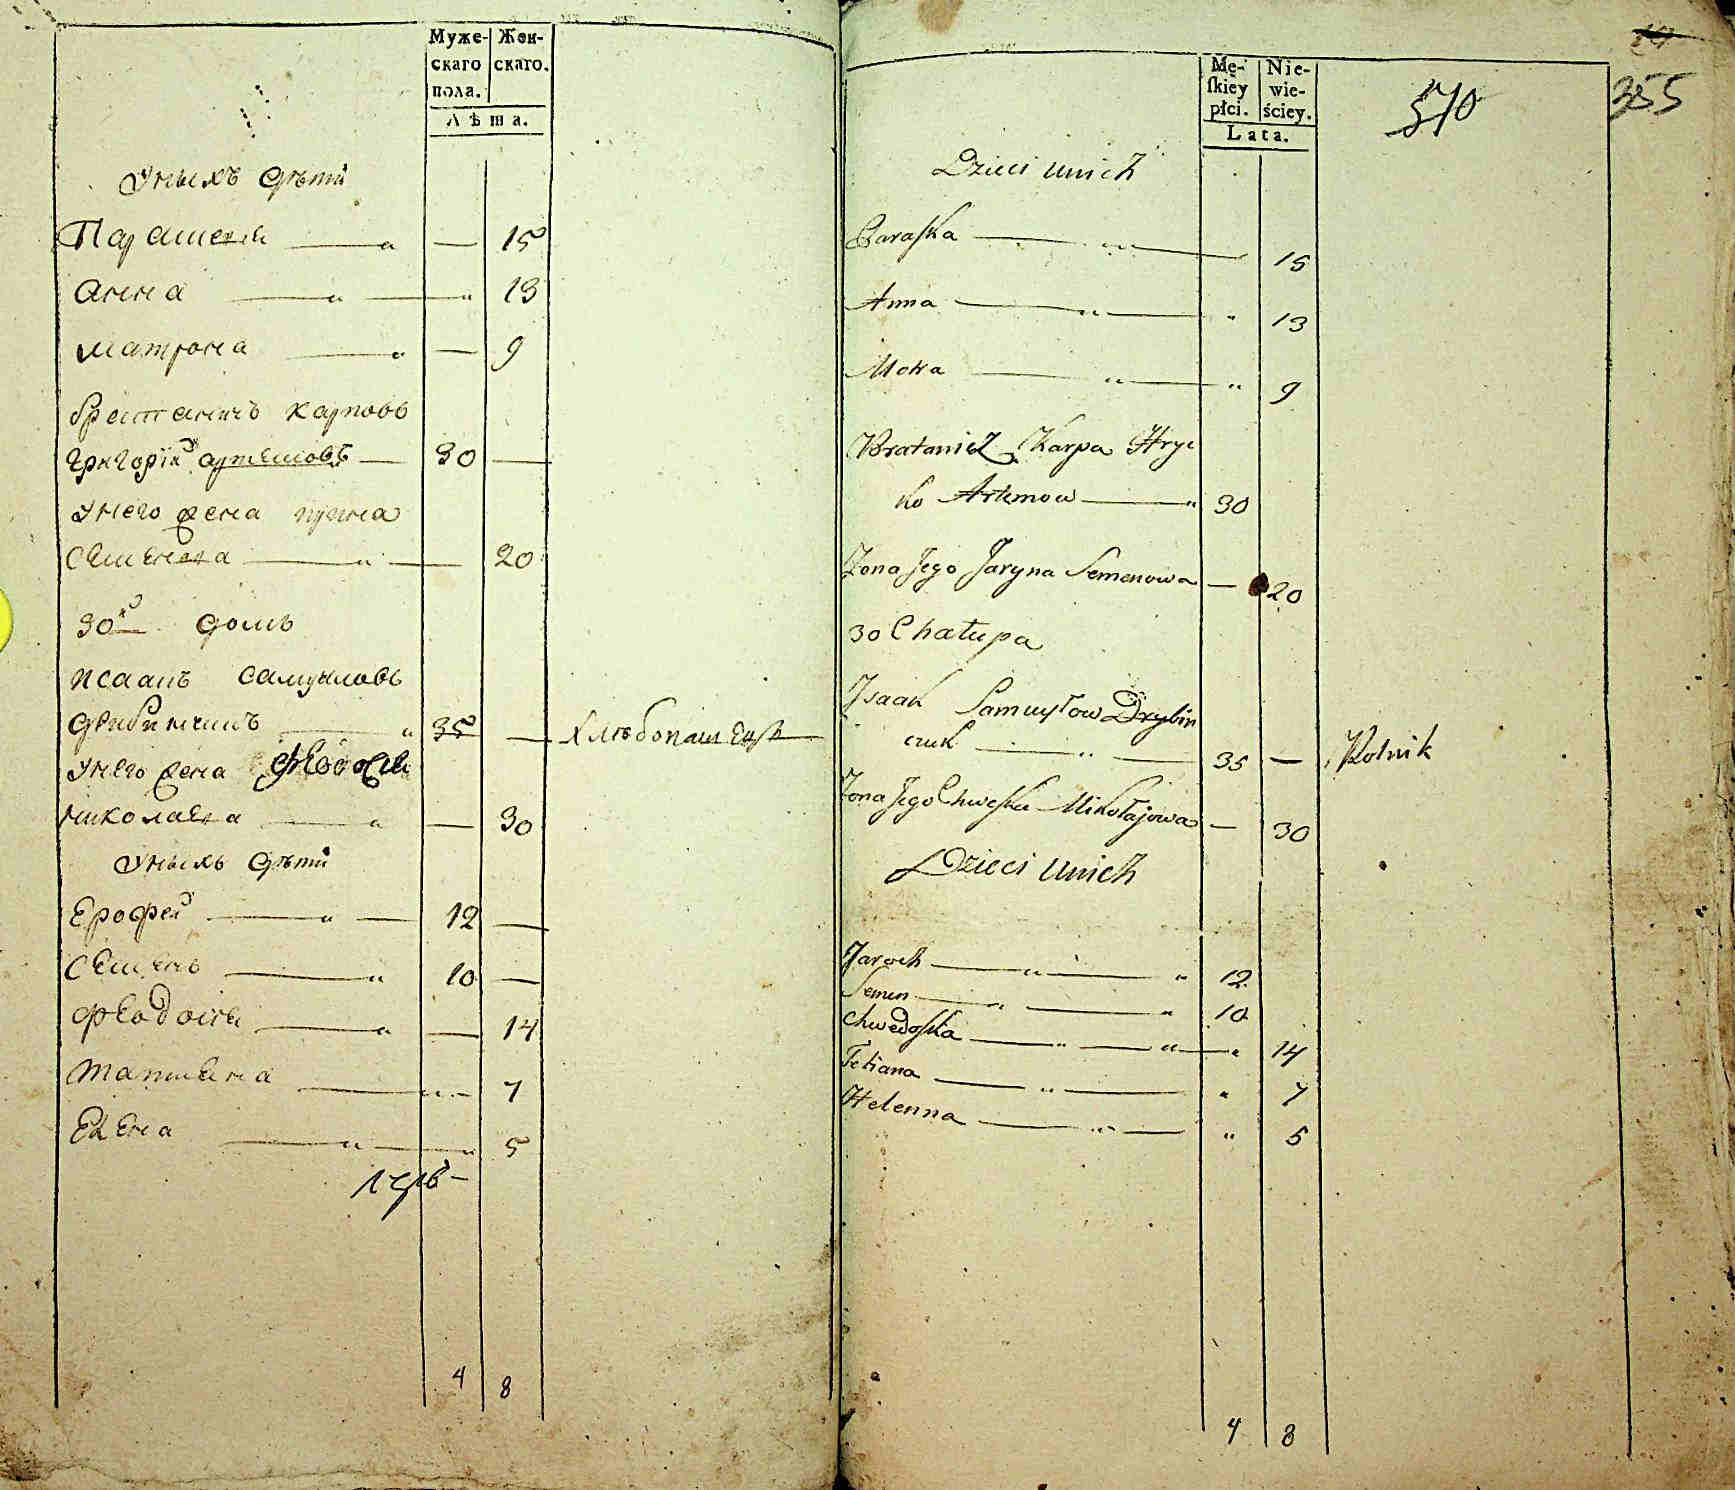 Муже- Жен-
скаго скаго.
пола.
Лѣта.
У ныхъ дѣти
Парасвея 15
Анна 13
Матрона 9
братаничъ Карповъ
Григорій Артемовъ 30
У него жена
Семенова 20
30й домъ
Исаакъ Самуиловъ
35 Хлебопашецъ
У него жена Феодосия
Николаева 30
У ныхъ дѣти
Ерофей 12
Семенъ 10
Феодосия 14
Татиана 7
Елена 5
4 8
355
Mę- Nie-
skiey wie-
płci. ściey.
Lata.
570
Dzieci unich
Paraska 15
Anna 13
9
Bratanicz Karpa Hry
ko Artemow 30
Zona Jego Jaryna Semenowa 20
30 Chałupa
Jsaak Samuyłow Drybin
czuk 35 Rolnik
Zona Jego Chweska Mikołajowa 30
Dzieci unich
Jaroch 12
Semen 10
Chwedoska 14
Tetiana 7
Helenna 5
4 8